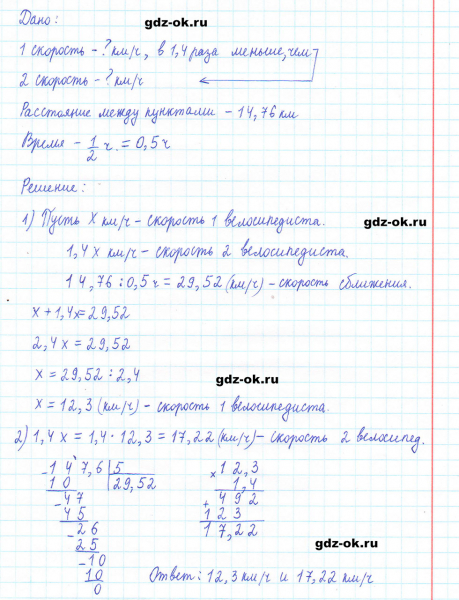 gdz-ok.ru
Дано:
1 скорость - ? км/ч, в 1,4 раза меньше, чем
2 скорость - ? км/ч
Расстояние между пунктами - 14,76 км
Время - 1/2 ч. = 0,5 ч
Решение:
1) Пусть x км/ч - скорость 1 велосипедиста.
gdz-ok.ru
1,4x км/ч - скорость 2 велосипедиста.
14,76 : 0,5 ч = 29,52 (км/ч) - скорость сближения.
x + 1,4x = 29,52
2,4x = 29,52
x = 29,52 : 2,4
gdz-ok.ru
x = 12,3 (км/ч) - скорость 1 велосипедиста.
2) 1,4x = 1,4 · 12,3 = 17,22 (км/ч) - скорость 2 велосипед.
- 147,6 | 5
10 | 29,52
- 47
45
- 26
25
- 10
10
0
× 12,3
1,4
+ 492
123
17,22
gdz-ok.ru
Ответ: 12,3 км/ч и 17,22 км/ч